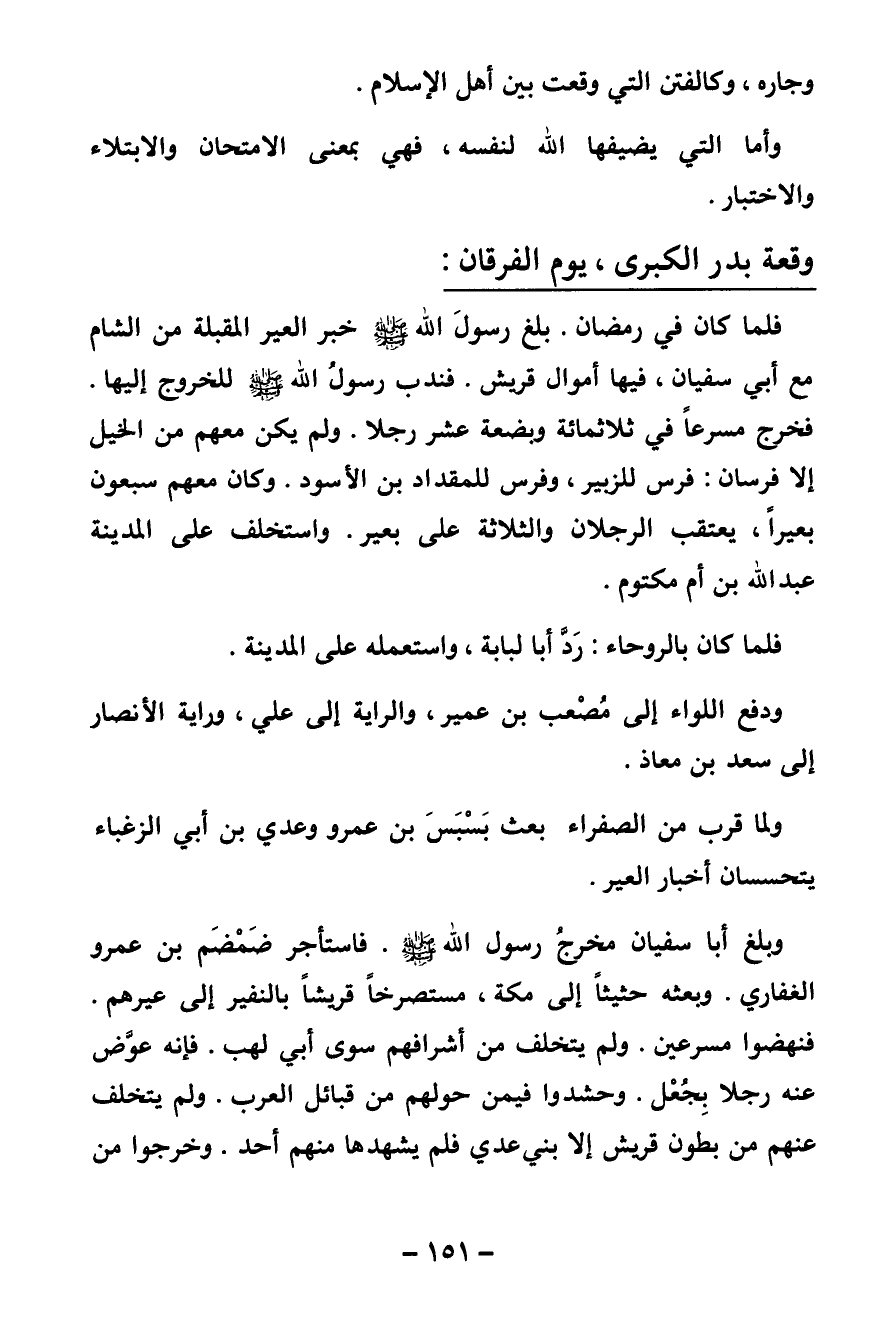 وجاره ، وكالفتن التي وقعت بين أهل الإسلام .
وأما التي يضيفها الله لنفسه ، فهي بمعنى الامتحان والابتلاء
والاختبار .
وقعة بدر الكبرى ، يوم الفرقان :
فلما كان في رمضان . بلغ رسولَ الله ﷺ خبر العير المقبلة من الشام
مع أبي سفيان ، فيها أموال قريش . فندب رسولُ الله ﷺ للخروج إليها .
فخرج مسرعاً في ثلاثمائة وبضعة عشر رجلا . ولم يكن معهم من الخيل
إلا فرسان : فرس للزبير ، وفرس للمقداد بن الأسود . وكان معهم سبعون
بعيراً ، يعتقب الرجلان والثلاثة على بعير . واستخلف على المدينة
عبدالله بن أم مكتوم .
فلما كان بالروحاء : رَدَّ أبا لبابة ، واستعمله على المدينة .
ودفع اللواء إلى مُصْعب بن عمير ، والراية إلى علي ، وراية الأنصار
إلى سعد بن معاذ .
ولما قرب من الصفراء بعث بَسْبَسَ بن عمرو وعدي بن أبي الزغباء
يتحسسان أخبار العير .
وبلغ أبا سفيان مخرجُ رسول الله ﷺ . فاستأجر ضَمْضَم بن عمرو
الغفاري . وبعثه حثيثاً إلى مكة ، مستصرخاً قريشاً بالنفير إلى عيرهم .
فنهضوا مسرعين . ولم يتخلف من أشرافهم سوى أبي لهب . فإنه عوَّض
عنه رجلا بِجُعْل . وحشدوا فيمن حولهم من قبائل العرب . ولم يتخلف
عنهم من بطون قريش إلا بني عدي فلم يشهدها منهم أحد . وخرجوا من
– ١٥١ –